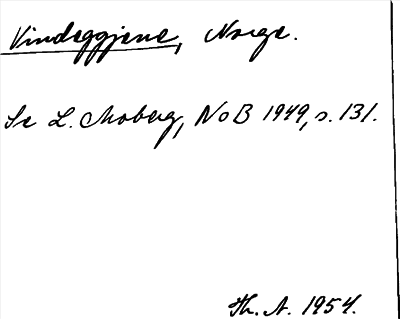 Vindeggjene, Norge.
Se L. Moberg, NoB 1949, s. 131.
Th. A. 1954.